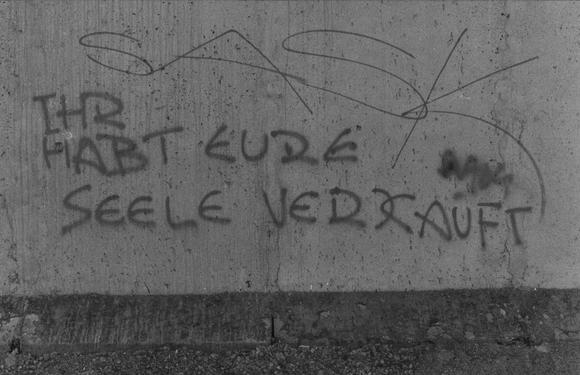 IHR
HABT EURE
SEELE VERKAUFT